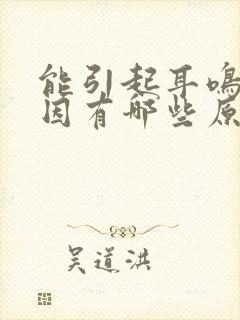 能引起耳鸣
因有哪些原
吴道洪